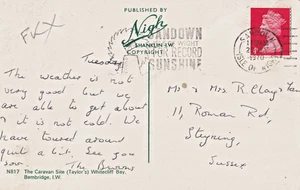 PUBLISHED BY
Nigh
SHANKLIN I.W.
COPYRIGHT
SANDOWN
RECORD
SUNSHINE
1970
Tuesday
The weather is not
very good but we
are able to get about
it is not cold. We
have toured around
quite a bit. See you
soon. The Burns
Mr & Mrs R. Clay
11, Roman Rd,
Steyning,
Sussex
N817 The Caravan Site (Taylor's) Whitecliff Bay,
Bembridge, I.W.